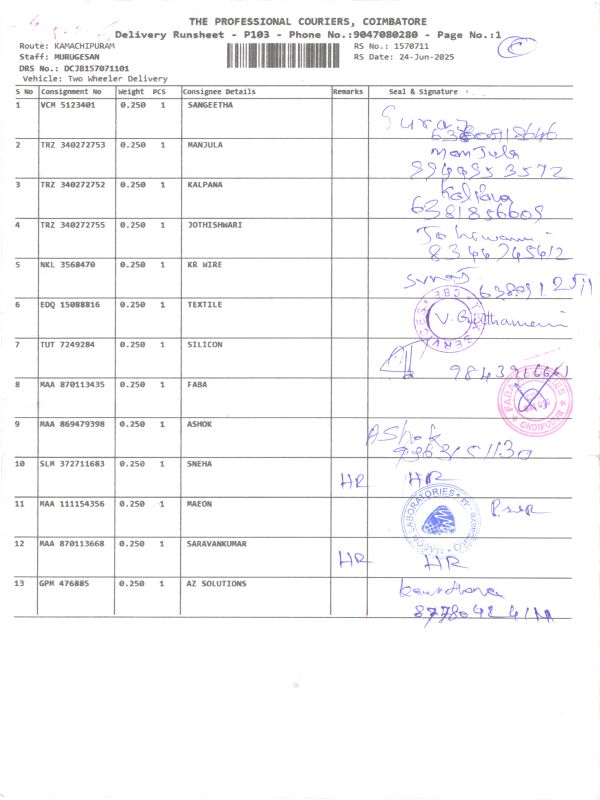 THE PROFESSIONAL COURIERS, COIMBATORE
Delivery Runsheet - P103 - Phone No.:9047080280 - Page No.:1
Route: KAMACHIPURAM RS No.: 1570711
Staff: MURUGESAN RS Date: 24-Jun-2025
DRS No.: DCJB157071101
Vehicle: Two Wheeler Delivery
S No Consignment No Weight PCS Consignee Details Remarks Seal & Signature
1 VCM 5123401 0.250 1 SANGEETHA
2 TRZ 340272753 0.250 1 MANJULA Manjula
3 TRZ 340272752 0.250 1 KALPANA Kalpana
6381856609
4 TRZ 340272755 0.250 1 JOTHISHWARI
8344745612
5 NKL 3568470 0.250 1 KR WIRE
6 EDQ 15088816 0.250 1 TEXTILE
7 TUT 7249284 0.250 1 SILICON
9843966661
8 MAA 870113435 0.250 1 FABA FABA ONDIPUDUR
9 MAA 869479398 0.250 1 ASHOK Ashok
10 SLM 372711683 0.250 1 SNEHA HR HR
11 MAA 111154356 0.250 1 MAEON MAEON LABORATORIES
12 MAA 870113668 0.250 1 SARAVANKUMAR HR HR
13 GPM 476885 0.250 1 AZ SOLUTIONS